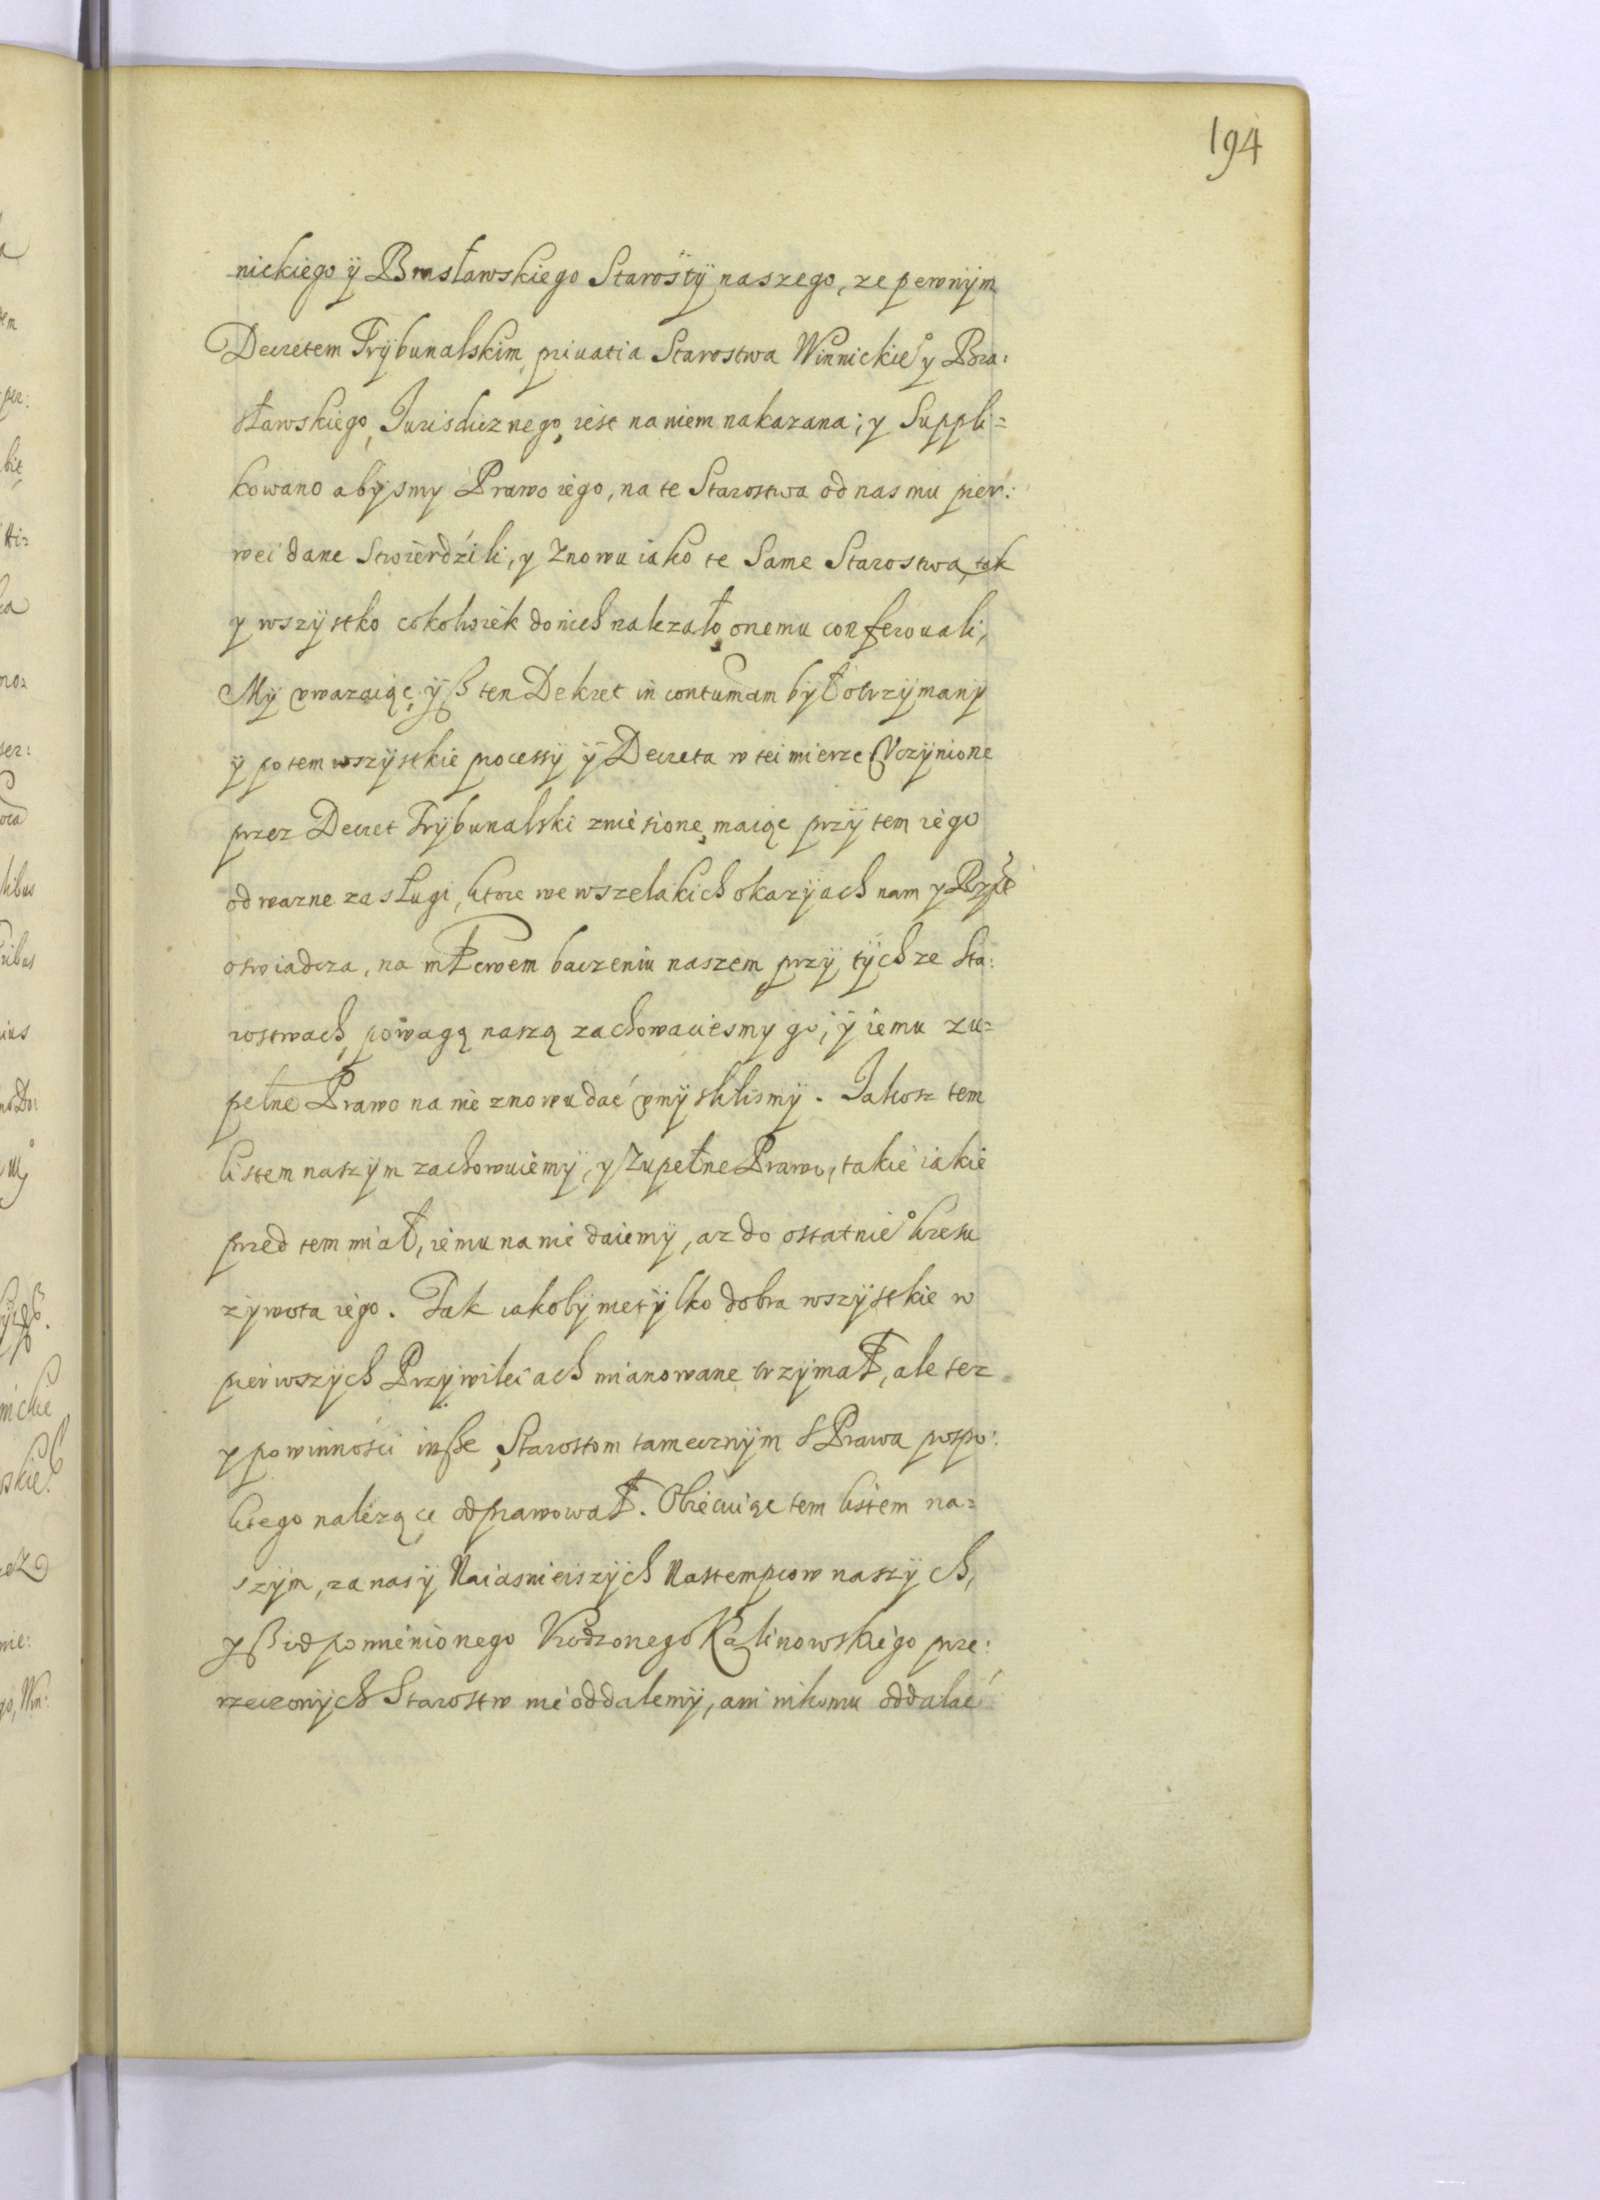 194
nickiego ÿ Brasławskiego Starostÿ naszego, ze pewnÿm
Decretem Trÿbunalskim, priuatia Starostwa Winnickie⁰ y Bra:
sławskiego, Jurisducznego, iest na niem nakazana; y Suppli=
kowano abÿsmy Prawo iego, na te Starostwa od nas mu pier:
wei dane Stwierdźili, y Znowu iako te Same Starostwa, tak
y wszÿstko cokolwiek do nich nalezało, onemu conferowali,
Mÿ vwazaiąc, ÿß ten Dekret in contumam bÿł otrzÿmanÿ
ÿ potem wszÿstkie processÿ ÿ Decreta w tei mierze Vczÿnione
przez Decret Trÿbunalski zniesione, maiąc przÿ tem iego
odwazne zasługi, ktore we wszelakich okazÿach nam y Rzpte
oswiadcza, na młscwem baczeniu naszem, przÿ tÿchze Sta:
rostwach, powagą naszą zachowaliesmy go; ÿ iemu zu=
pełne Prawo na nie znowu dać vmÿslilismÿ. Jakosz tem
listem naszÿm zachowuiemÿ, y Zupełne Prawo, takie iakie
przed tem miał, iemu na nie daiemÿ, az do ostatnie⁰ kresu
zÿwota iego. Tak iakobÿ nietÿlko dobra wszÿstkie w
pierwszÿch Przÿwileiach mianowane trzÿmał, ale tez
y powinności inße, Starostom tamecznÿm s Prawa pospo:
litego nalezące odprawował. Obiecuiąc tem listem na=
szÿm, za nas ÿ Naiasnieiszÿch Nastempcow naszÿch,
yß idpomienionego Vrodzonego Kalinowskiego prze:
rzeczonÿch Starostw nie oddalemÿ, ani nikomu oddalać